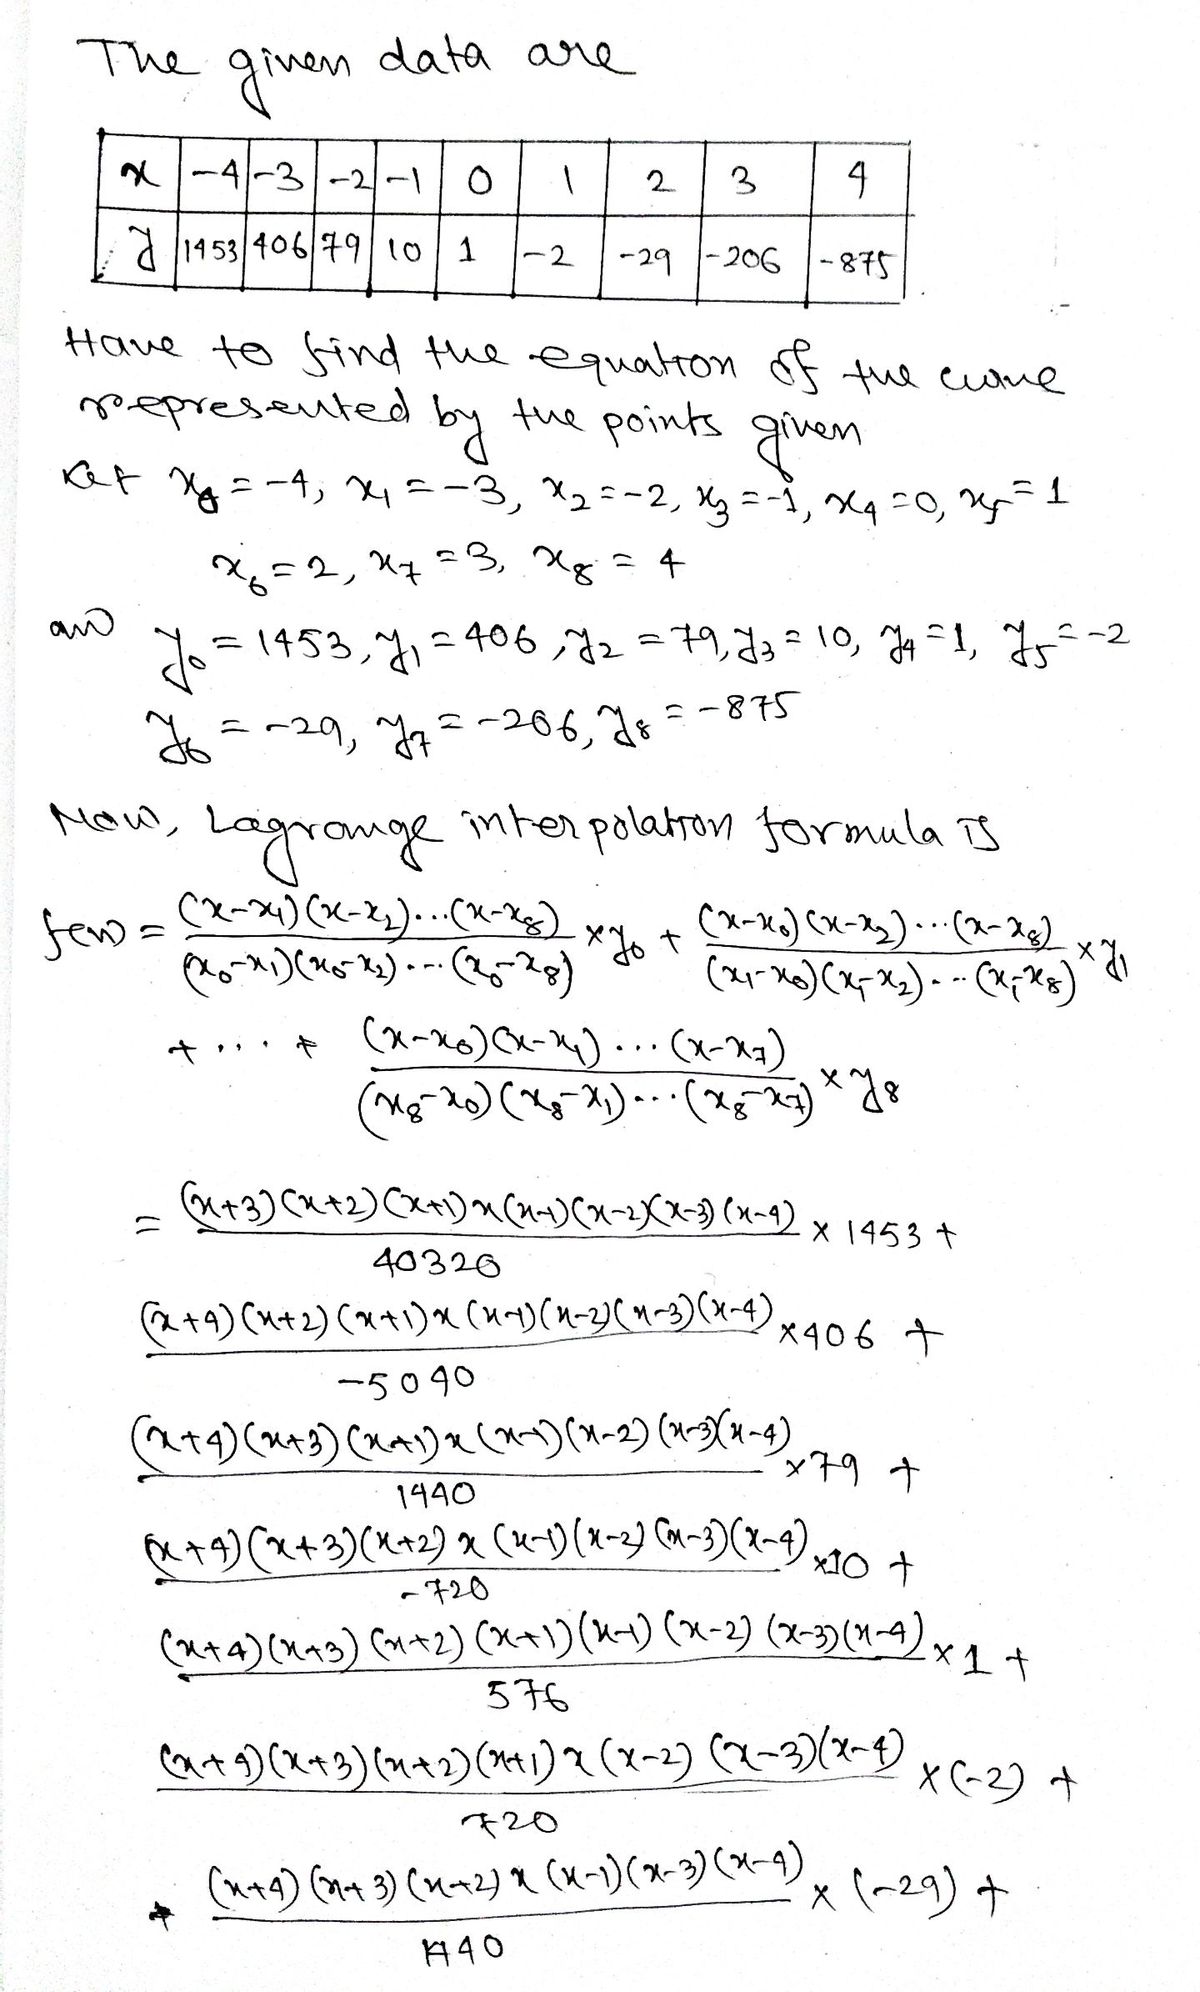 The given data are
x | -4 | -3 | -2 | -1 | 0 | 1 | 2 | 3 | 4
y | 1453 | 406 | 79 | 10 | 1 | -2 | -29 | -206 | -875
Have to find the equation of the curve
represented by the points given
Let x₀ = -4, x₁ = -3, x₂ = -2, x₃ = -1, x₄ = 0, x₅ = 1
x₆ = 2, x₇ = 3, x₈ = 4
and y₀ = 1453, y₁ = 406, y₂ = 79, y₃ = 10, y₄ = 1, y₅ = -2
y₆ = -29, y₇ = -206, y₈ = -875
Now, Lagrange interpolation formula is
f(x) = (x-x₁)(x-x₂)...(x-x₈) / (x₀-x₁)(x₀-x₂)...(x₀-x₈) × y₀ + (x-x₀)(x-x₂)...(x-x₈) / (x₁-x₀)(x₁-x₂)...(x₁-x₈) × y₁
+ ... + (x-x₀)(x-x₁)...(x-x₇) / (x₈-x₀)(x₈-x₁)...(x₈-x₇) × y₈
= (x+3)(x+2)(x+1)x(x-1)(x-2)(x-3)(x-4) / 40320 × 1453 +
(x+4)(x+2)(x+1)x(x-1)(x-2)(x-3)(x-4) / -5040 × 406 +
(x+4)(x+3)(x+1)x(x-1)(x-2)(x-3)(x-4) / 1440 × 79 +
(x+4)(x+3)(x+2)x(x-1)(x-2)(x-3)(x-4) / -720 × 10 +
(x+4)(x+3)(x+2)(x+1)(x-1)(x-2)(x-3)(x-4) / 576 × 1 +
(x+4)(x+3)(x+2)(x+1)x(x-2)(x-3)(x-4) / 720 × (-2) +
+ (x+4)(x+3)(x+2)x(x-1)(x-3)(x-4) / 1440 × (-29) +